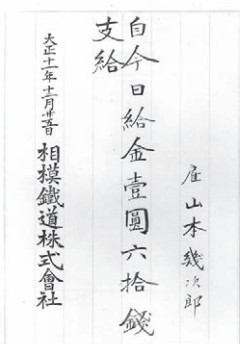 雇山本幾次郎
自今日給金壹圓六拾錢
支給
大正十一年十一月廿五日
相模鐵道株式會社